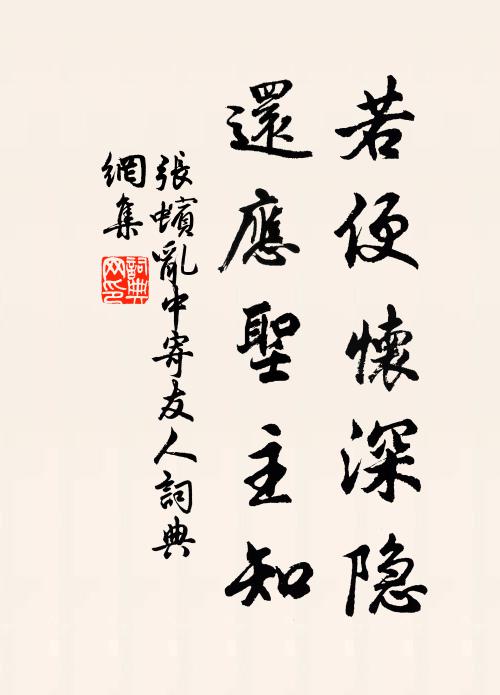 若便懷深隐
還應聖主知
張蠙亂中寄友人詞典
網集
詞典
网印